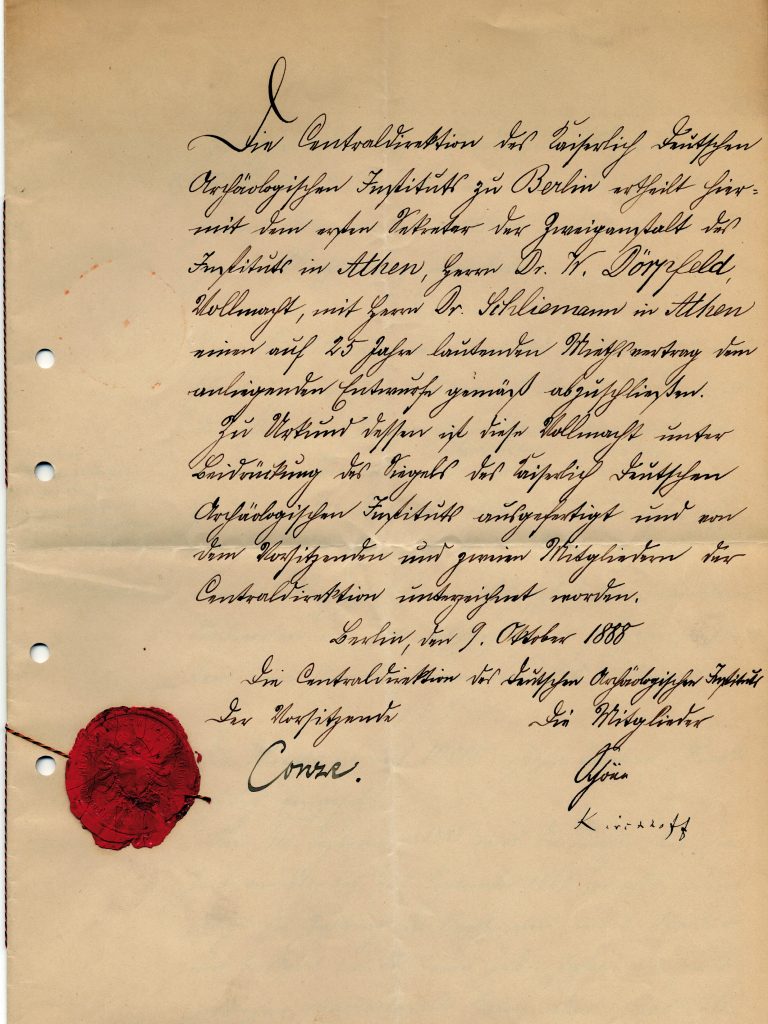 Die Centraldirektion des Kaiserlich Deutschen
Archäologischen Instituts zu Berlin ertheilt hier=
mit dem ersten Sekretar der Zweiganstalt des
Instituts in Athen, Herrn Dr. W. Dörpfeld,
Vollmacht, mit Herrn Dr. Schliemann in Athen
einen auf 25 Jahre lautenden Miethsvertrag dem
anliegenden Entwurfe gemäß abzuschließen.
Zu Urkund dessen ist diese Vollmacht unter
Beidrückung des Siegels des Kaiserlich Deutschen
Archäologischen Instituts ausgefertigt und von
dem Vorsitzenden und zweien Mitgliedern der
Centraldirektion unterzeichnet worden.
Berlin, den 9. Oktober 1888
Die Centraldirektion des Deutschen Archäologischen Instituts
Der Vorsitzende Die Mitglieder
Conze. Schöne
Kirchhoff